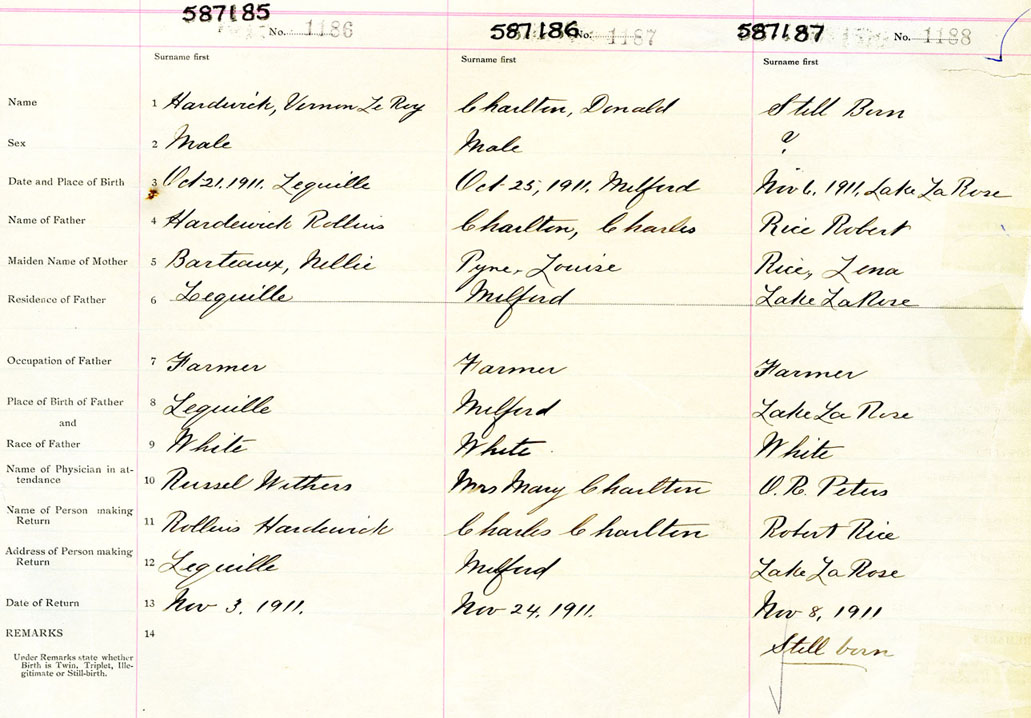 587185 587186 587187
No. 1186 No. 1187 No. 1188
Surname first Surname first Surname first
Name 1 Hardwick, Vernon Le Roy Charlton, Donald Still Born
Sex 2 Male Male ?
Date and Place of Birth 3 Oct 21, 1911. Lequille Oct 25, 1911, Milford Nov 6, 1911, Lake La Rose
Name of Father 4 Hardwick Rollins Charlton, Charles Rice Robert
Maiden Name of Mother 5 Barteaux, Nellie Pyne, Louise Rice, Lena
Residence of Father 6 Lequille Milford Lake LaRose
Occupation of Father 7 Farmer Farmer Farmer
Place of Birth of Father 8 Lequille Milford Lake La Rose
and
Race of Father 9 White White White
Name of Physician in at-
tendance 10 Russel Withers Mrs Mary Charlton O. R. Peters
Name of Person making
Return 11 Rollins Hardwick Charles Charlton Robert Rice
Address of Person making
Return 12 Lequille Milford Lake La Rose
Date of Return 13 Nov 3, 1911. Nov 24, 1911. Nov 8, 1911
REMARKS 14
Still born
Under Remarks state whether
Birth is Twin, Triplet, Ille-
gitimate or Still-birth.